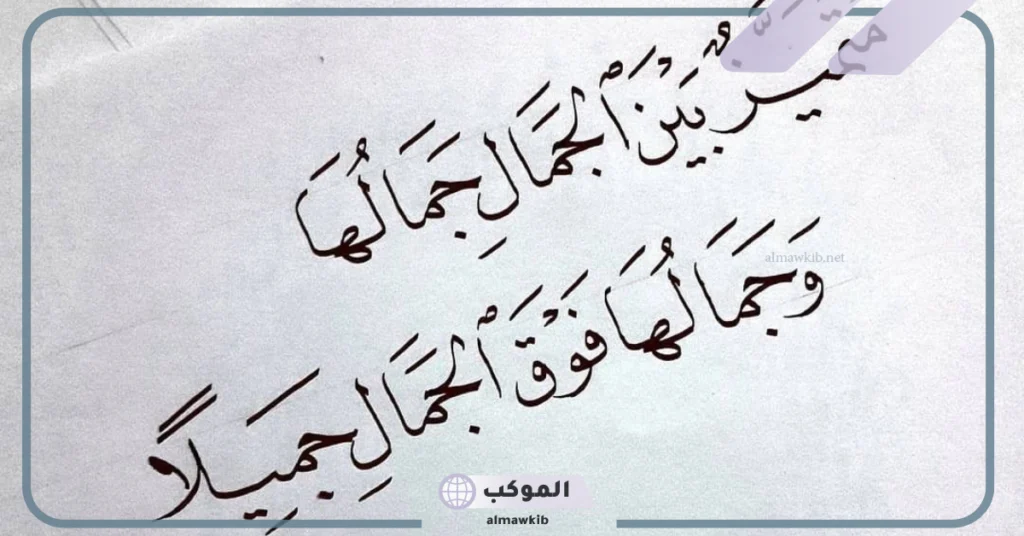 بَيْنَ ٱلْجَمَالِ جَمَالُهَا
وَجَمَالُهَا فَوْقَ ٱلْجَمَالِ جَمِيلًا
almawkib.net
الموكب
almawkib